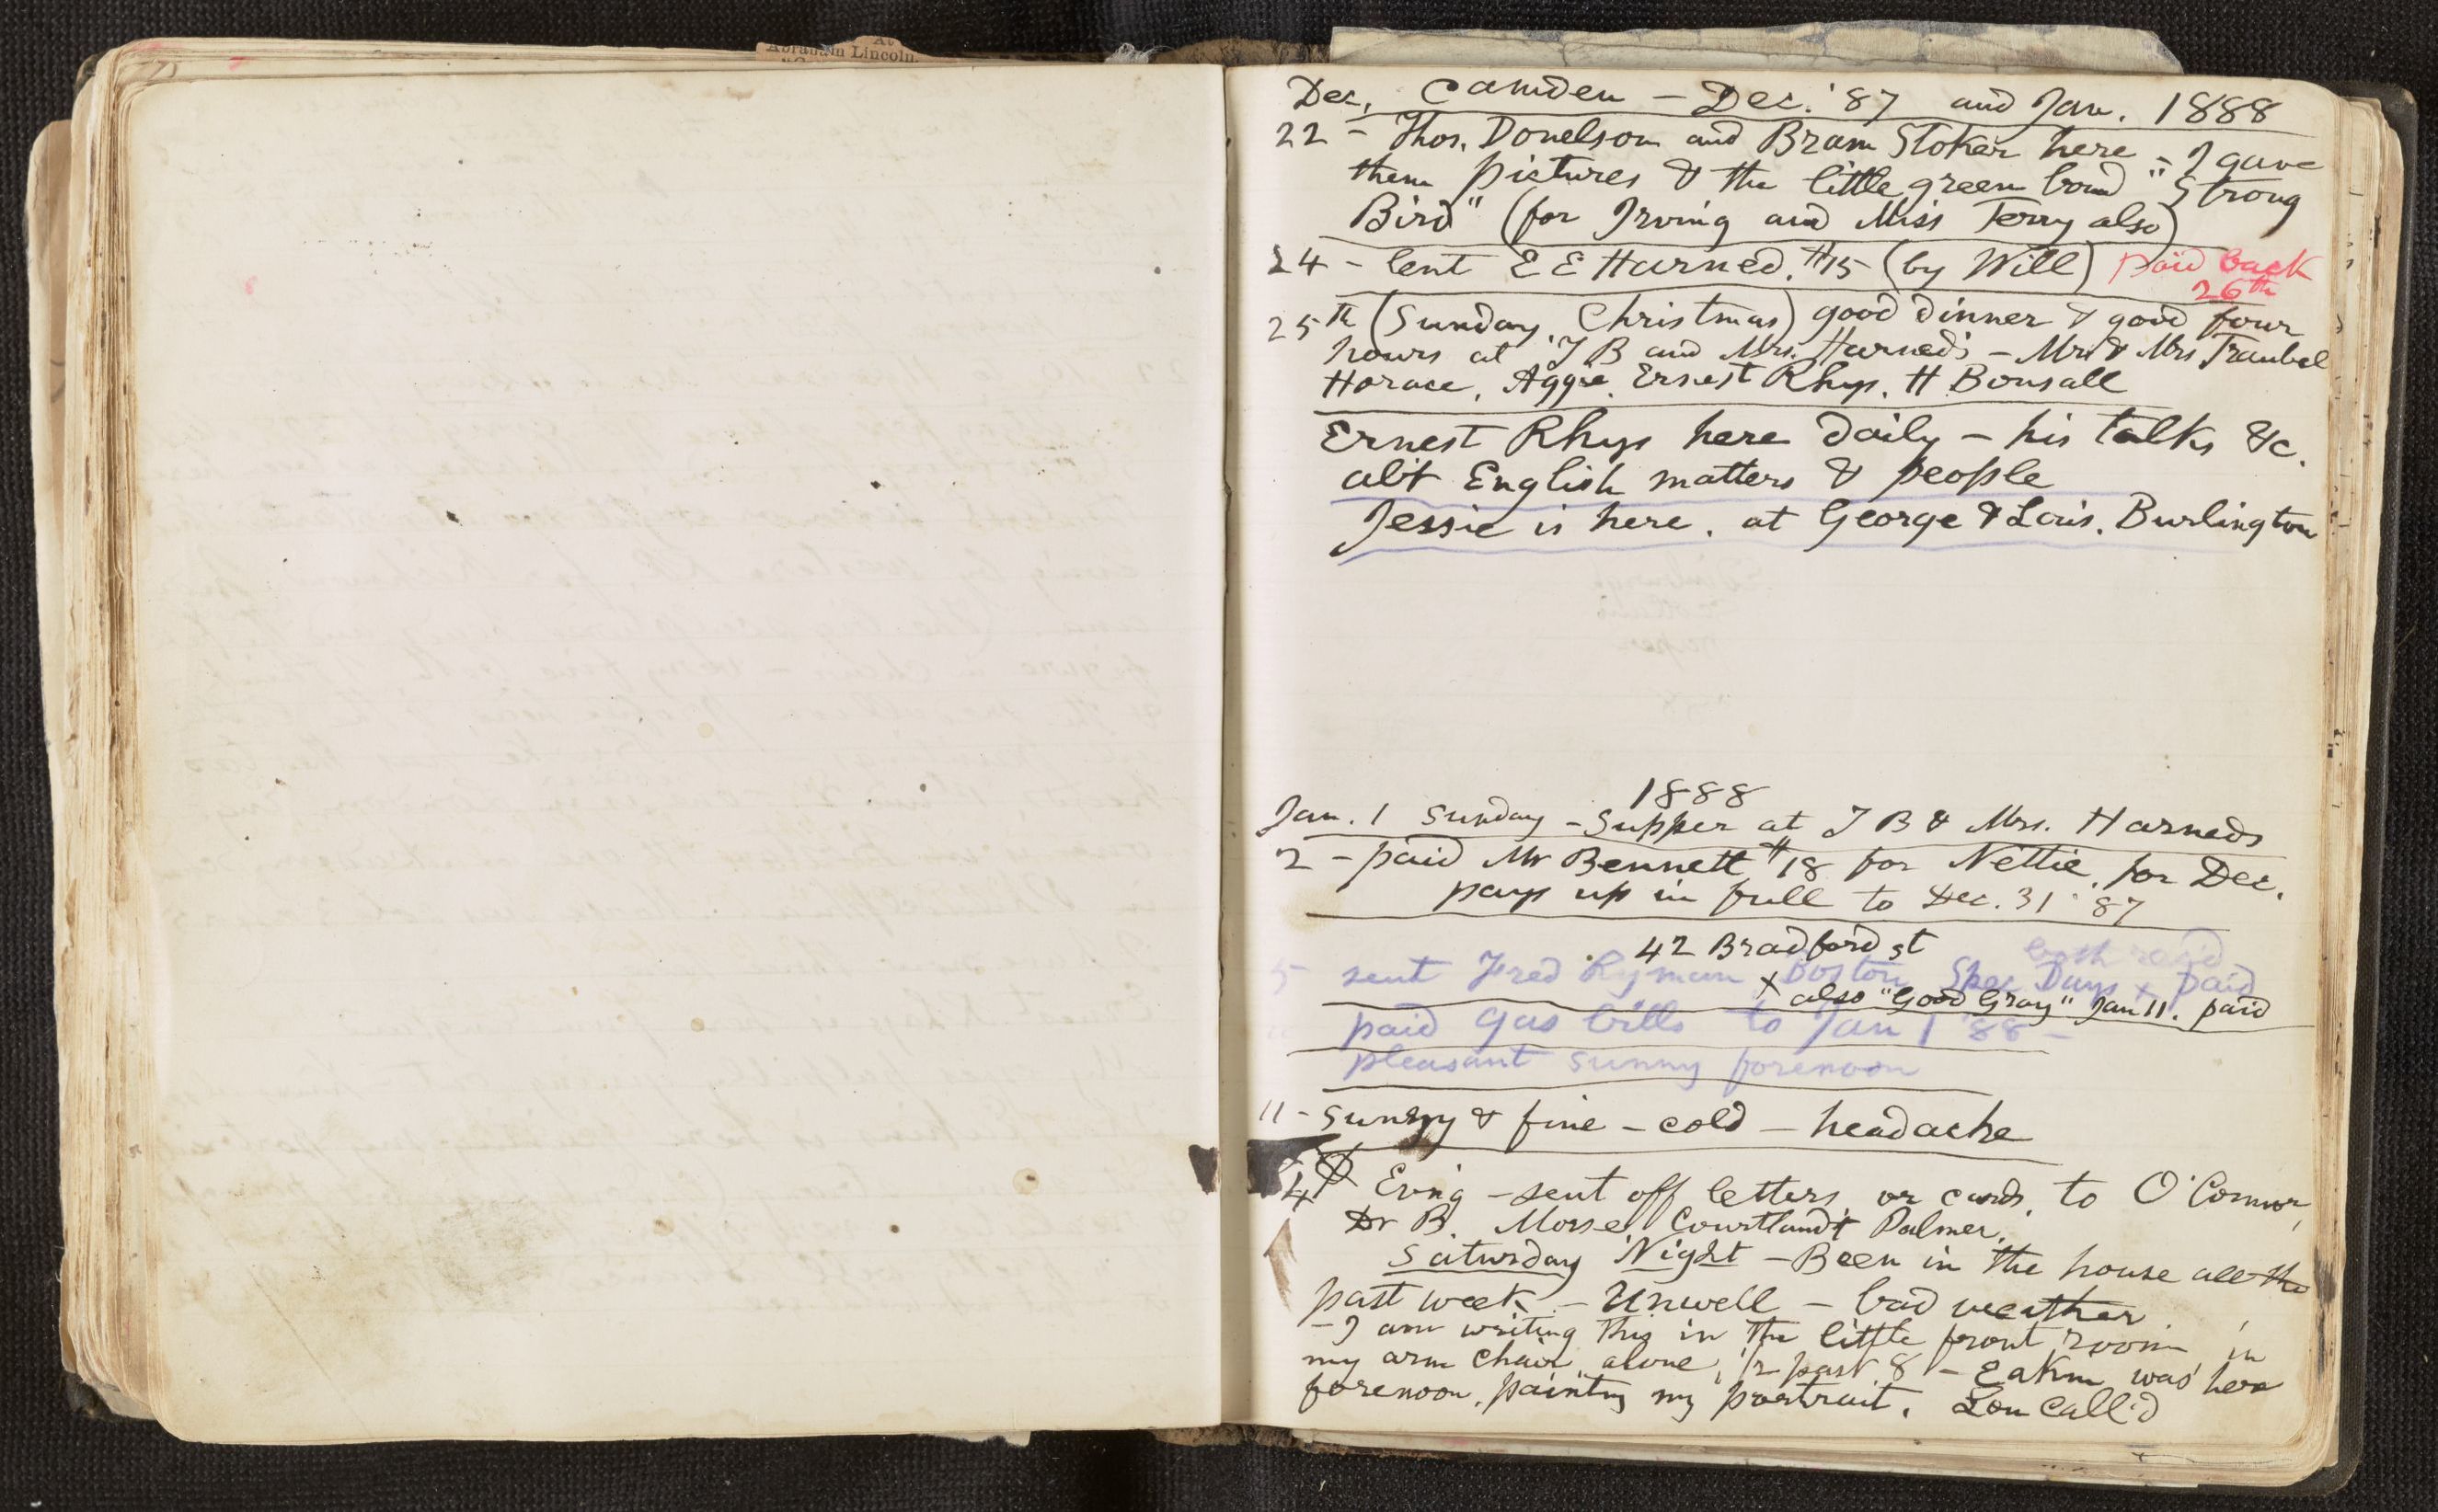 At
Abraham Lincoln.
Dec. Camden – Dec. '87 and Jan. 1888
22 – Thos. Donelson and Bram Stoker here – I gave
them pictures & the little green bound "Strong
Bird" (for Irving and Miss Terry also)
24 – lent E E Harned, $15 (by Will) paid back
26th
25th (Sunday, Christmas) good dinner & good four
hours at T B and Mrs. Harned's – Mr & Mrs Traubel
Horace, Aggie, Ernest Rhys, H Bonsall
Ernest Rhys here daily – his talks &c.
abt English matters & people
Jessie is here, at George & Lou's, Burlington
1888
Jan. 1 Sunday – Supper at T B & Mrs. Harneds
2 – paid Mr Bennett $18 for Nettie, for Dec.
pays up in full to Dec. 31 '87
42 Bradford st both rec'd
5 sent Fred Ryman Boston, Spec Days x paid
x also "Good Gray" Jan 11. paid
paid gas bills to Jan 1 '88 –
pleasant sunny forenoon
11 – sunny & fine – cold – headache
14 Ev'ng – sent off letters, or cards, to O'Connor,
Dr B, Morse, Courtlandt Palmer,
Saturday Night – Been in the house all the
past week – Unwell – bad weather
– I am writing this in the little front room, in
my arm chair, alone, ½ past 8 – Eakin was here
forenoon, painting my portrait, Lou call'd